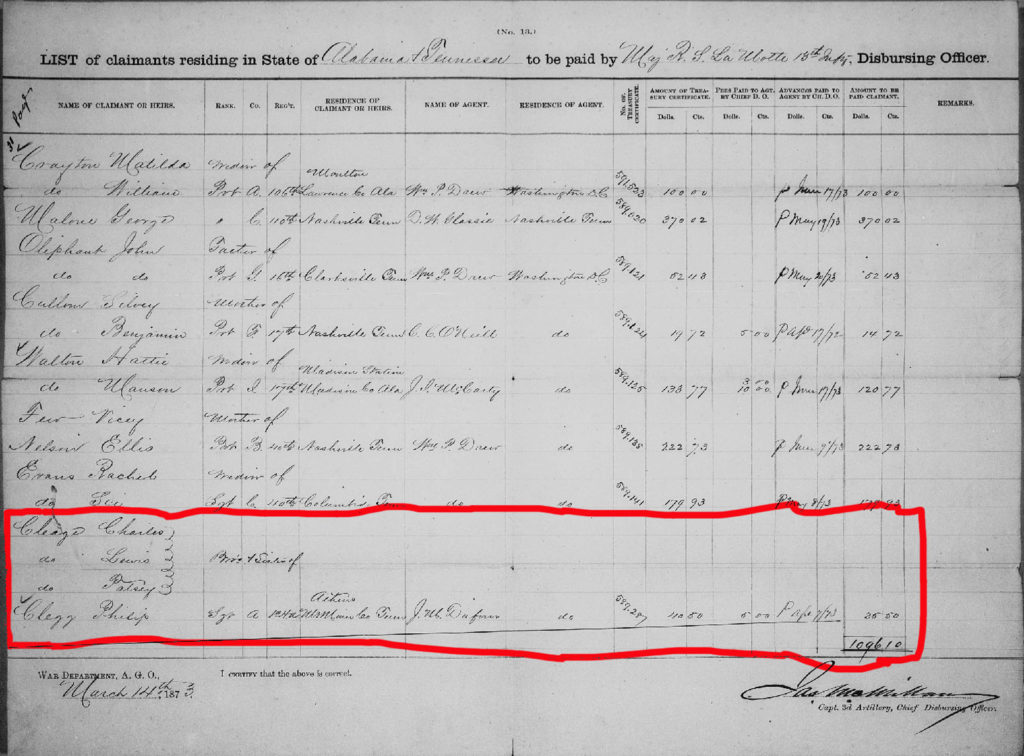 (No. 13.)
LIST of claimants residing in State of Alabama & Tennessee to be paid by Maj R. S. La Motte 13th Infty. Disbursing Officer.
NAME OF CLAIMANT OR HEIRS. RANK. CO. REG'T. RESIDENCE OF CLAIMANT OR HEIRS. NAME OF AGENT. RESIDENCE OF AGENT. NO. OF TREASURY CERTIFICATE. AMOUNT OF TREASURY CERTIFICATE. FEES PAID TO AGT. BY CHIEF D. O. ADVANCES PAID TO AGENT BY CH. D. O. AMOUNT TO BE PAID CLAIMANT. REMARKS.
Dolls. Cts. Dolls. Cts. Dolls. Cts. Dolls. Cts.
Crayton Matilda Widow of Moulton
do William Pvt A. 106th Lawrence Co Ala Wm P. Drew Washington D.C 100 00 P June 17/73 100 00
Malone George " C. 110th Nashville Tenn D. W. Glassie Nashville Tenn 370 02 P May 19/73 370 02
Oliphant John Father of
do do Pvt G. 16th Clarksville Tenn Wm P. Drew Washington D.C 589.121 52 43 52 43
Cullom Silvey Mother of
do Benjamin Pvt 17th Nashville Tenn C. C. O'Neill do 589.124 19 72 5 00 14 72
Walton Hattie Widow of Madison Station
do Manson Pvt I. Madison Co Ala do 589.125 133 77 3 00 10 00 P June 17/73 120 77
Few Vicey Mother of
Nelson Ellis Pvt B. 40th Nashville Tenn Wm P. Drew do 589.135 222 73 222 73
Evans Rachel Widow of
do Sgt 40th Columbia Tenn do do 589.141 179 93 P May 8/73 179 93
Cleage Charles
do Lewis Bros & Sister of
do Patsey
Clegg Philip Sgt A Athens McMinn Co Tenn 589.287 40 50 5 00
1096 10
WAR DEPARTMENT, A. G. O., I CERTIFY that the above is correct.
March 14th 1873
Jas McMillan
Capt. 3d Artillery, Chief Disbursing Officer.